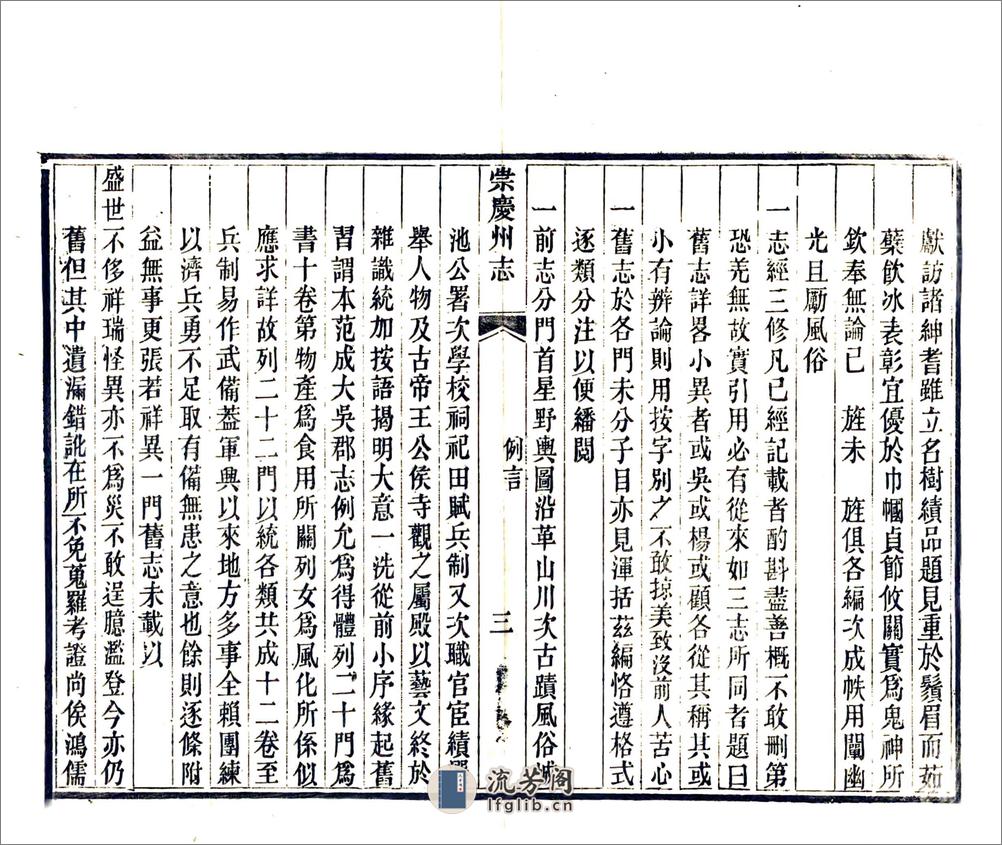 獻訪諸紳耆雖立名樹績品題見重於鬚眉而茹
蘗飲冰表彰宜優於巾幗貞節攸關實爲鬼神所
欽奉無論已 旌未 旌俱各編次成帙用闡幽
光且勵風俗
一志經三修凡已經記載者酌斟盡善概不敢刪第
恐羌無故實引用必有從來如三志所同者題曰
舊志詳畧小異者或吳或楊或顧各從其稱其或
小有辨論則用按字別之不敢掠美致沒前人苦心
一舊志於各門未分子目亦見渾括茲編恪遵格式
逐類分注以便繙閱
一前志分門首星野輿圖沿革山川次古蹟風俗城
崇慶州志
例言
三
池公署次學校祠祀田賦兵制又次職官宦績選
舉人物及古帝王公侯寺觀之屬殿以藝文終於
雜識統加按語揭明大意一洗從前小序緣起舊
習謂本范成大吳郡志例允爲得體列二十門爲
書十卷第物產爲食用所關列女爲風化所係似
應求詳故列二十二門以統各類共成十二卷至
兵制易作武備葢軍興以來地方多事全賴團練
以濟兵勇不足取有備無患之意也餘則逐條附
益無事更張若祥異一門舊志未載以
盛世不侈祥瑞怪異亦不爲災不敢逞臆濫登今亦仍
舊但其中遺漏錯訛在所不免蒐羅考證尚俟鴻儒
流芳阁
lfglib.cn